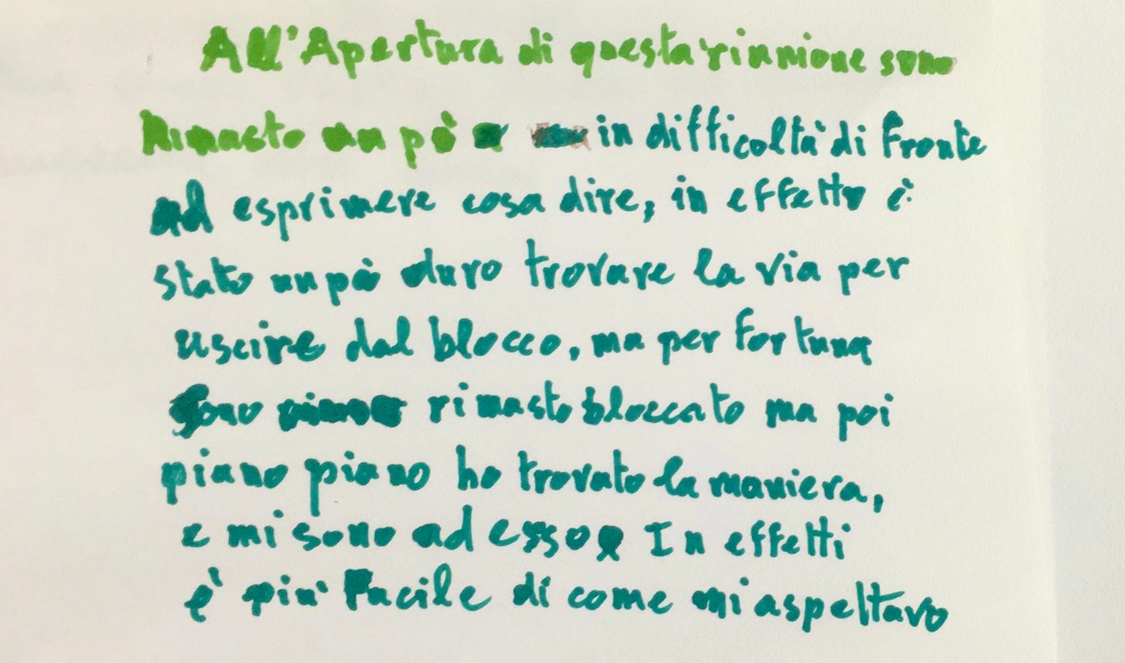 All'Apertura di questa riunione sono
Rimasto un pò in difficoltà di fronte
ad esprimere cosa dire, in effetto è
stato un pò duro trovare la via per
uscire dal blocco, ma per fortuna
sono rimasto bloccato ma poi
piano piano ho trovato la maniera,
e mi sono adesso In effetti
è più Facile di come mi aspettavo